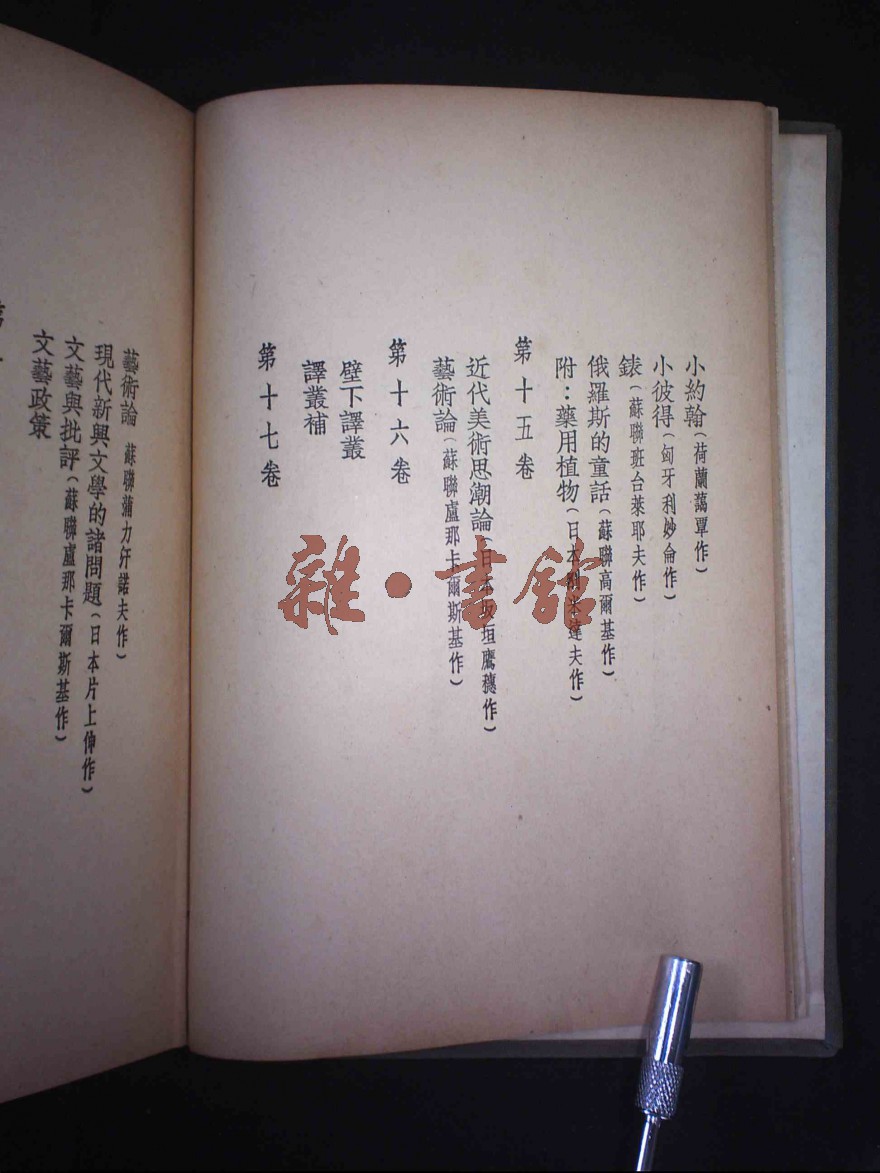 小約翰(荷蘭藹覃作)
小彼得(匈牙利妙侖作)
錶(蘇聯班台萊耶夫作)
俄羅斯的童話(蘇聯高爾基作)
附：藥用植物(日本刈米達夫作)
第十五卷
近代美術思潮論(日本坂垣鷹穗作)
藝術論(蘇聯盧那卡爾斯基作)
第十六卷
壁下譯叢
譯叢補
第十七卷
藝術論 蘇聯蒲力汗諾夫作)
現代新興文學的諸問題(日本片上伸作)
文藝與批評(蘇聯盧那卡爾斯基作)
文藝政策
雜·書館